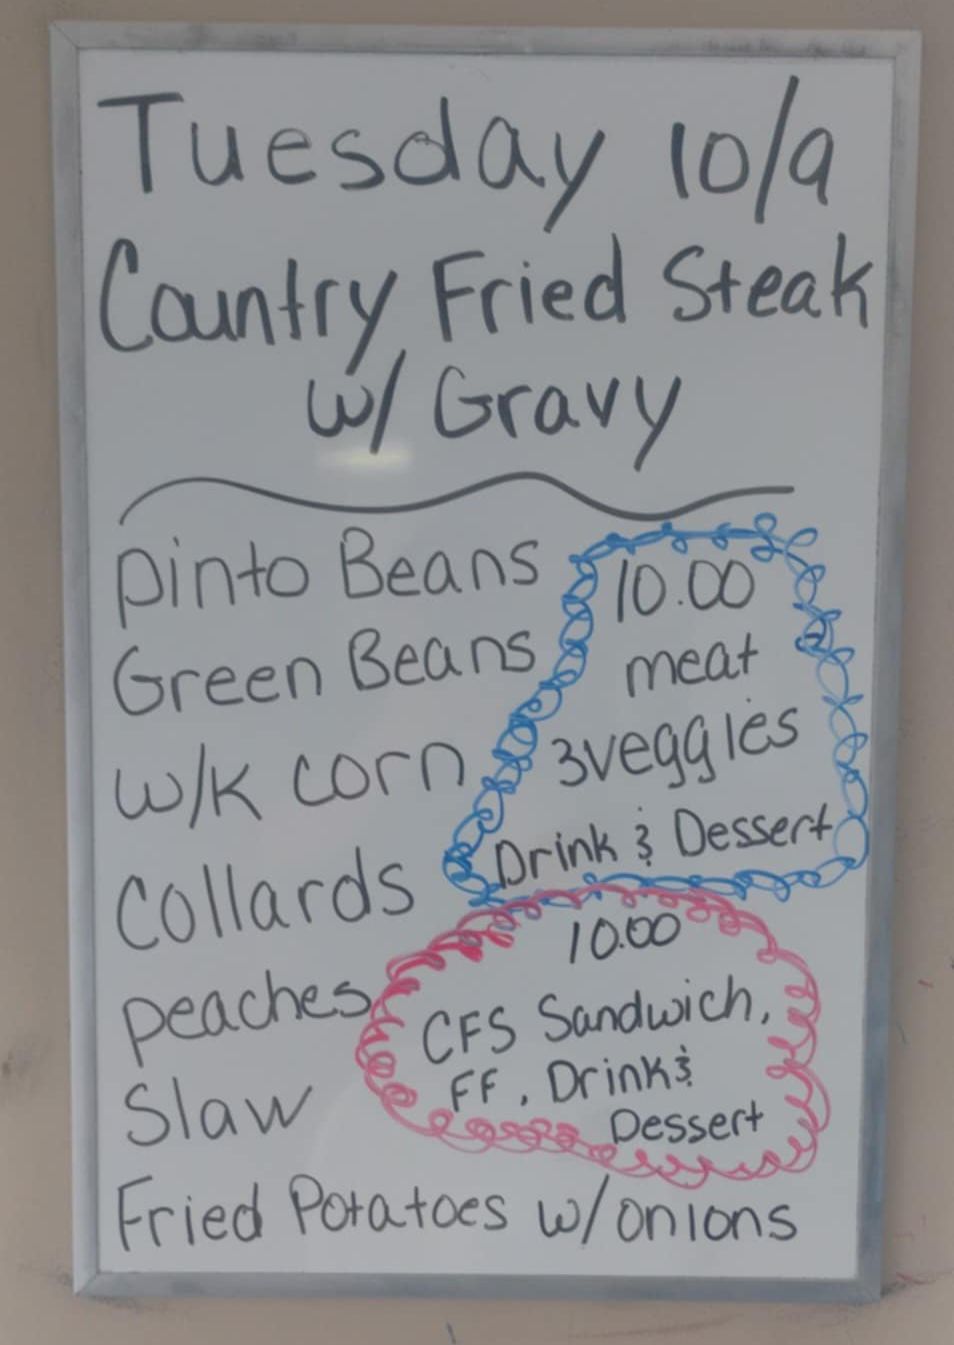 Tuesday 10/9
Country Fried Steak
w/ Gravy
pinto Beans
Green Beans
w/k corn
Collards
peaches
Slaw
Fried Potatoes w/onions
10.00
meat
3veggies
Drink & Dessert
10.00
CFS Sandwich,
FF, Drink &
Dessert